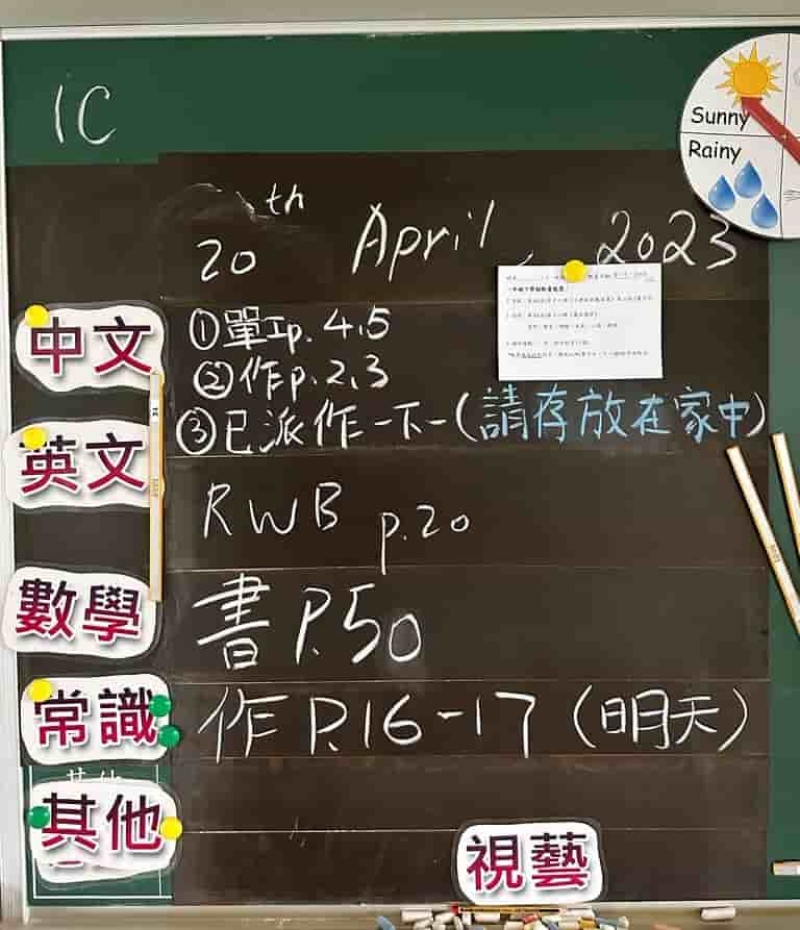 1C
Sunny
Rainy
20th April, 2023
中文
①單工p.4,5
②作p.2,3
③已派作一下一(請存放在家中)
英文
RWB p.20
數學
書 P.50
常識
作 P.16-17 (明天)
其他
視藝